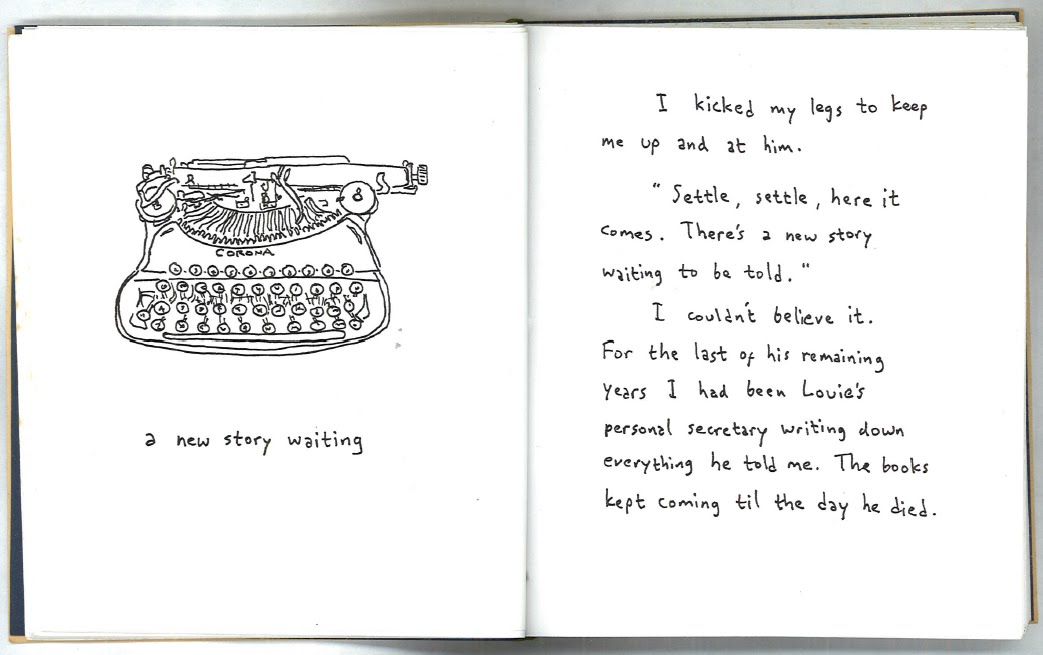 CORONA
a new story waiting
I kicked my legs to keep
me up and at him.
"Settle, settle, here it
comes. There's a new story
waiting to be told."
I couldn't believe it.
For the last of his remaining
years I had been Louie's
personal secretary writing down
everything he told me. The books
kept coming til the day he died.